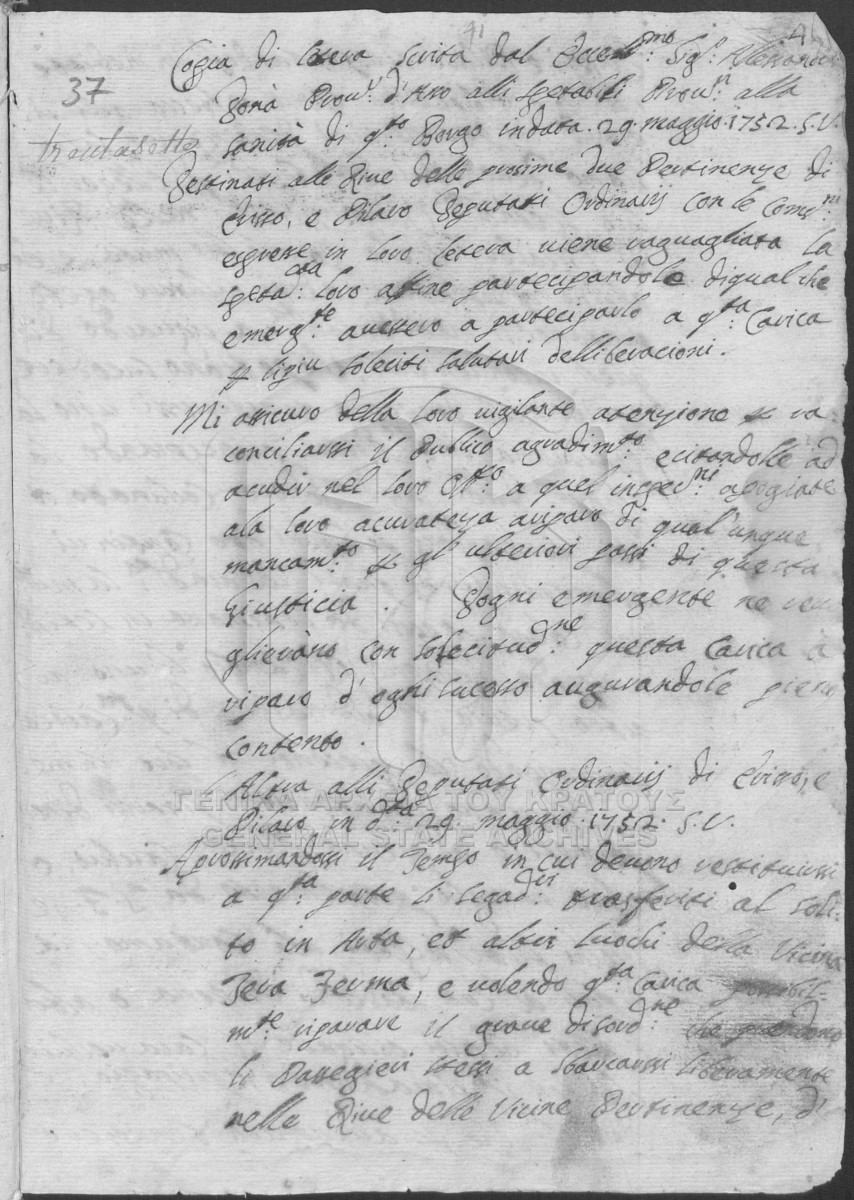 41 41
37
trentasette
Copia di letera scrita dal Eccell:mo Sig:r Alessandro
Donà Prov:r d'Asso alli spetabili Prov:ri alla
sanità di q:to Borgo in data. 29. maggio. 1752. S.V.
Destinati alle Rive delle prosime due Pertinenze di
Evisso, e Pilaro Deputati Ordinarij con le Com:ni
espresse in loro letera viene raguagliata la
speta: loro afine partecipandole di qualche
emerg:te avessero a parteciparlo a q:ta Carica
p li piu soleciti salutari delliberacioni.
Mi assicuro della loro vigilante atenzione p
conciliarssi il Publico agradim:to ecitandolle ad
acudir nel loro a quel apogiate
ala loro acuratezza a riparo di qual'unque
mancam:to p gl'ulteriori passi di questa
Giusticia. Dogni emergente ne
glierano con solecitud:ne questa Carica a
riparo d'ogni sucesso augurandole pieno
contento.
Altra alli Deputati Ordinarij di Evisso, e
Pilaro in d:ta 29. maggio. 1752. S.V.
Aprossimandosi il Tempo in cui devono restituirssi
a q:ta parte li Segad:ri trasferiti al soli-
to in Arta, et altir luochi della Vicina
Tera Ferma, e volendo q:ta Carica possibil-
m:te riparare il grave disord:ne che prendono
li Passegieri stessi a sbarcarssi liberamente
nelle Rive delle Vicine Pertinenze, d'
ΓΕΝΙΚΑ ΑΡΧΕΙΑ ΤΟΥ ΚΡΑΤΟΥΣ
GENERAL STATE ARCHIVES